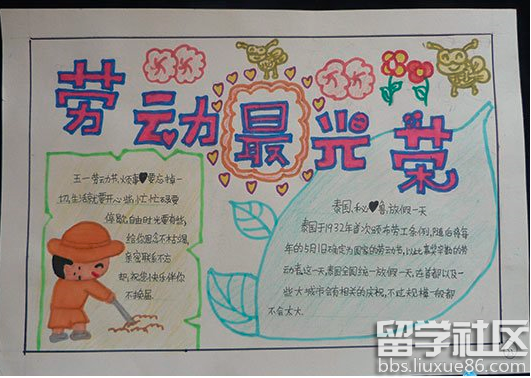 劳动最光荣
五一劳动节,烦事♥要忘掉一
切,生活就要开心些,忙忙碌碌要
停歇,自由时光要有些,
给你固念不枯涩,
亲密联系不万
却,祝您快乐伴你
不换届.
泰国,秘♥鲁,放假一天
泰国于1932年首次颁布劳工条例,随后将每
年的5月1日确定为国家的劳动节,以此嘉荣辛勤的劳
动者,这一天,泰国全国统一放假一天,在首都以及一
些大城市会有相关的庆祝,不过规模一般都
不会太大.
留学社区
bbs.liuxue86.com